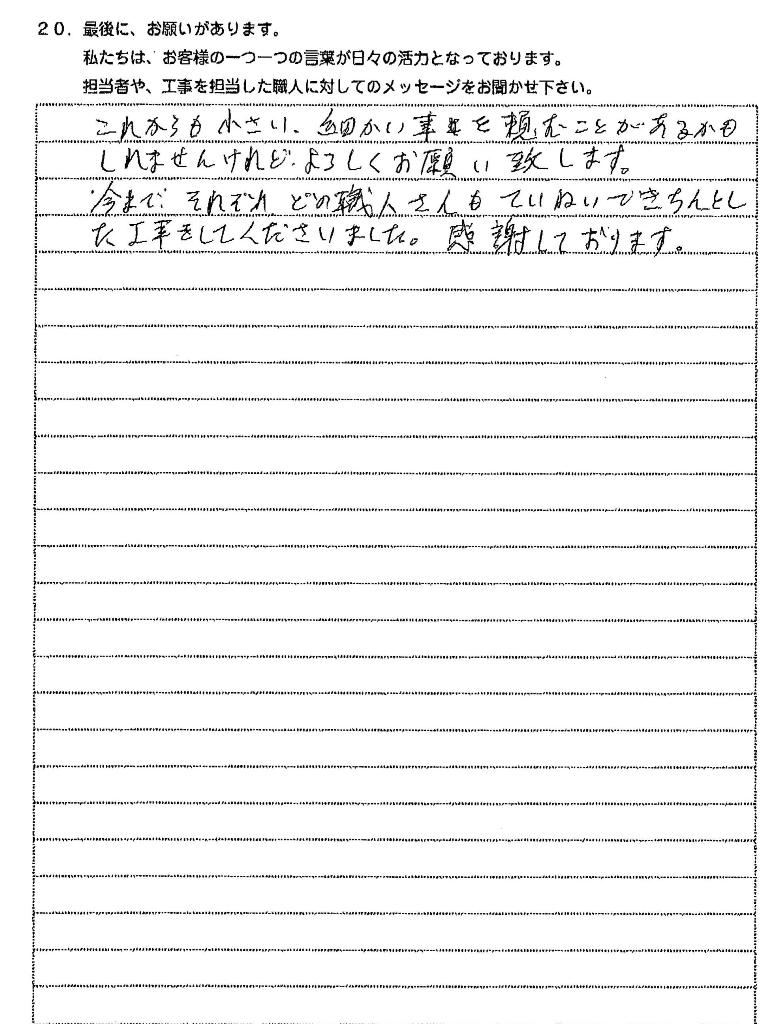 20. 最後に、お願いがあります。
私たちは、お客様の一つ一つの言葉が日々の活力となっております。
担当者や、工事を担当した職人に対してのメッセージをお聞かせ下さい。
これからも小さい、細かい事を頼むことがあるかも
しれませんけれど、よろしくお願い致します。
今まで、それぞれ、どの職人さんもていねいできちんとし
た工事をしてくださいました。感謝しております。